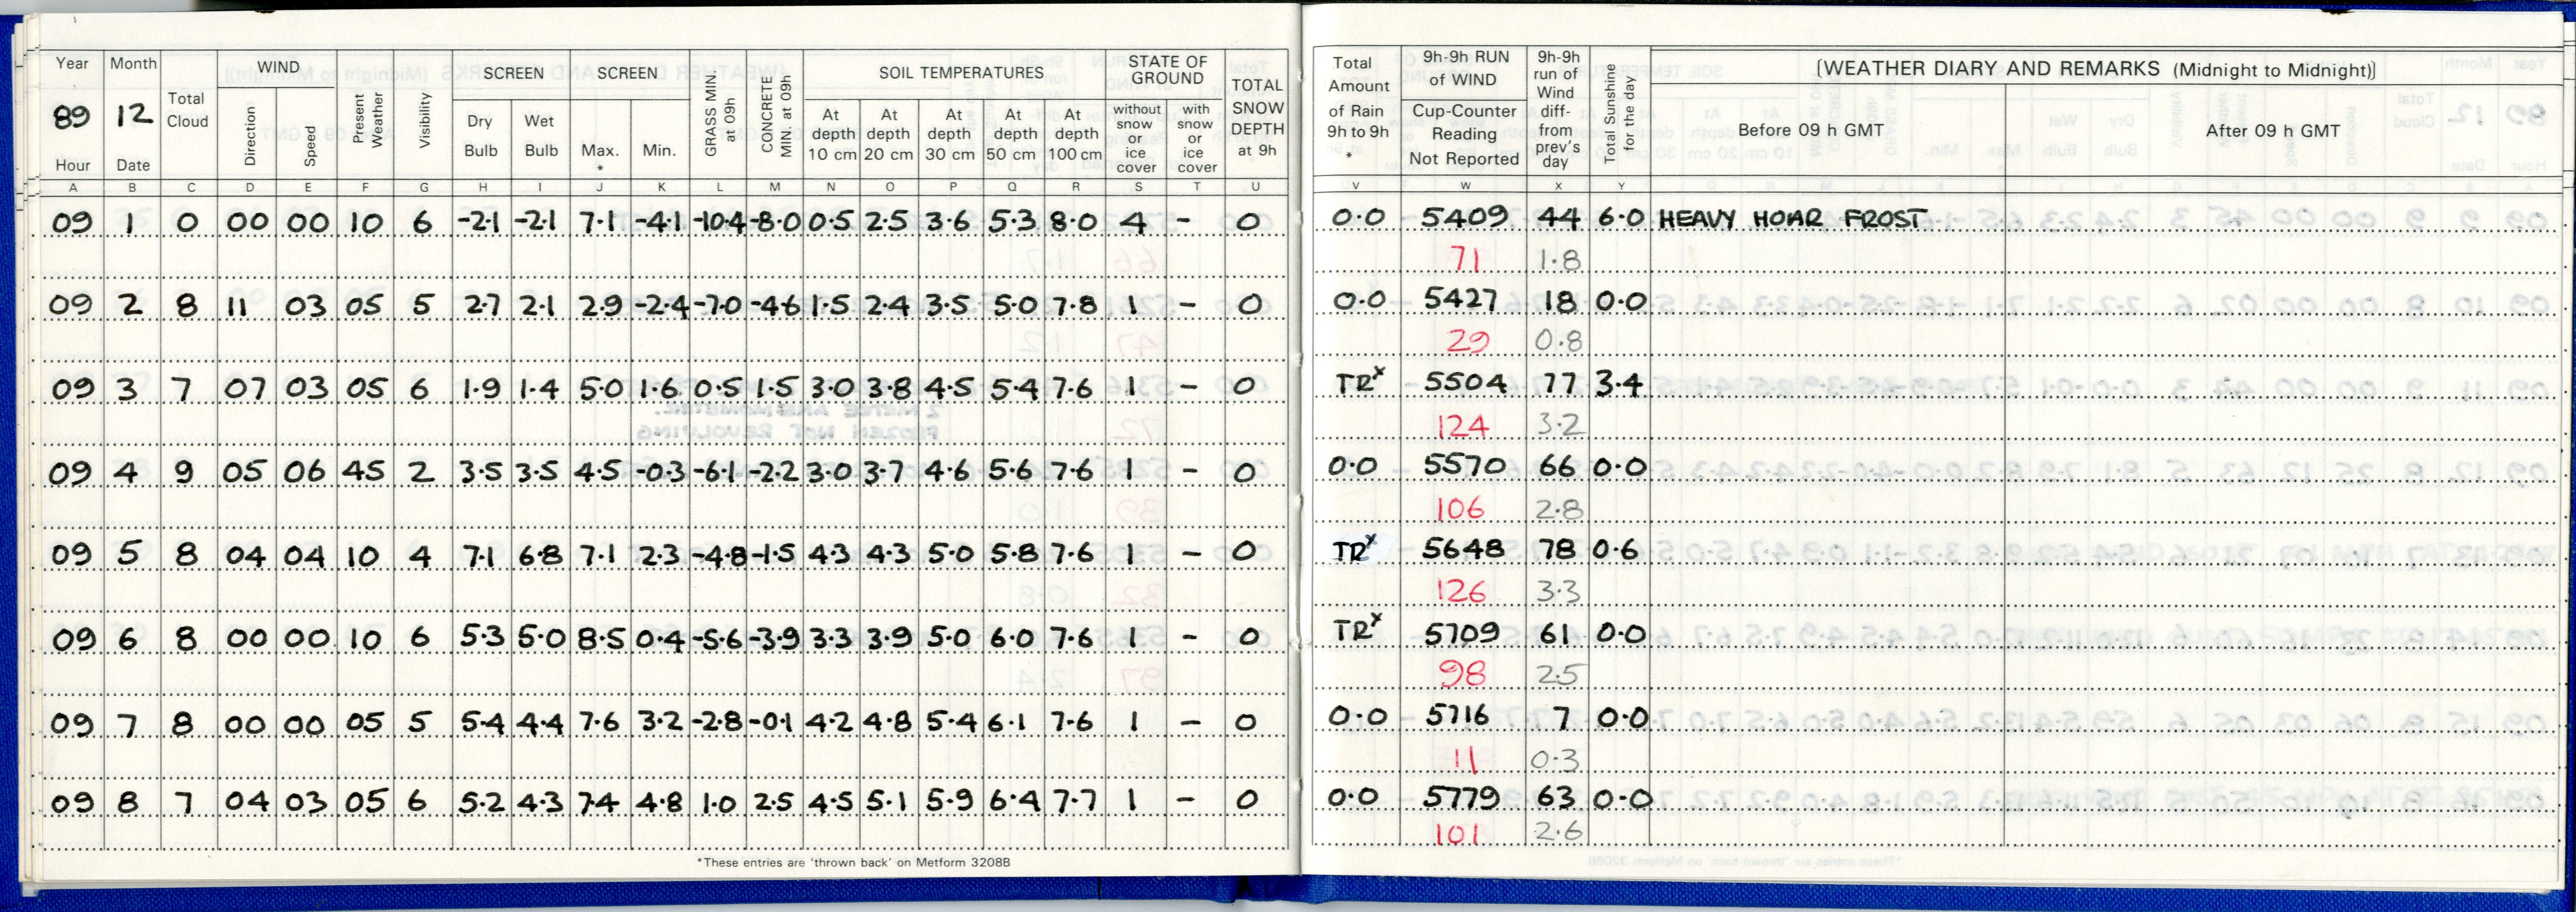 Year Month WIND SCREEN SCREEN SOIL TEMPERATURES STATE OF GROUND
89 12 Total Cloud Direction Speed Present Weather Visibility Dry Bulb Wet Bulb Max. * Min. GRASS MIN. at 09h CONCRETE MIN at 09h At depth 10 cm At depth 20 cm At depth 30 cm At depth 50 cm At depth 100 cm without snow or ice cover with snow or ice cover TOTAL SNOW DEPTH at 9h
Hour Date
A B C D E F G H I J K L M N O P Q R S T U
09 1 0 00 00 10 6 -2.1 -2.1 7.1 -4.1 -10.4 -8.0 0.5 2.5 3.6 5.3 8.0 4 - 0
09 2 8 11 03 05 5 2.7 2.1 2.9 -2.4 -7.0 -4.6 1.5 2.4 3.5 5.0 7.8 1 - 0
09 3 7 07 03 05 6 1.9 1.4 5.0 1.6 0.5 1.5 3.0 3.8 4.5 5.4 7.6 1 - 0
09 4 9 05 06 45 2 3.5 3.5 4.5 -0.3 -6.1 -2.2 3.0 3.7 4.6 5.6 7.6 1 - 0
09 5 8 04 04 10 4 7.1 6.8 7.1 2.3 -4.8 -1.5 4.3 4.3 5.0 5.8 7.6 1 - 0
09 6 8 00 00 10 6 5.3 5.0 8.5 0.4 -5.6 -3.9 3.3 3.9 5.0 6.0 7.6 1 - 0
09 7 8 00 00 05 5 5.4 4.4 7.6 3.2 -2.8 -0.1 4.2 4.8 5.4 6.1 7.6 1 - 0
09 8 7 04 03 05 6 5.2 4.3 7.4 4.8 1.0 2.5 4.5 5.1 5.9 6.4 7.7 1 - 0
*These entries are 'thrown back' on Metform 3208B
Total Amount of Rain 9h to 9h * 9h-9h RUN of WIND Cup-Counter Reading Not Reported 9h-9h run of Wind diff- from prev's day Total Sunshine for the day [WEATHER DIARY AND REMARKS (Midnight to Midnight)]
Before 09 h GMT After 09 h GMT
V W X Y
0.0 5409 44 6.0 HEAVY HOAR FROST
71 1.8
0.0 5427 18 0.0
29 0.8
TRx 5504 77 3.4
124 3.2
0.0 5570 66 0.0
106 2.8
TRx 5648 78 0.6
126 3.3
TRx 5709 61 0.0
98 2.5
0.0 5716 7 0.0
11 0.3
0.0 5779 63 0.0
101 2.6